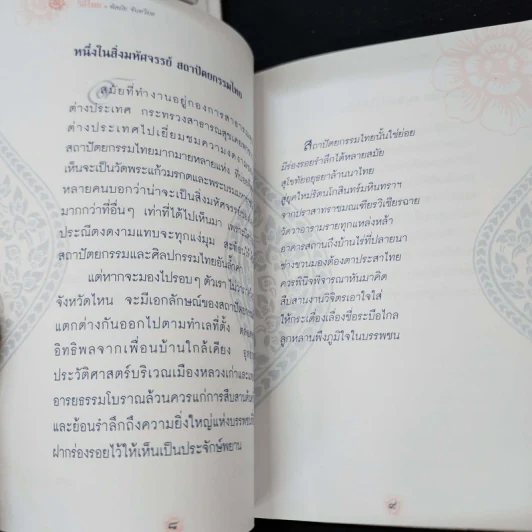 วิถีไทย • หัสนัย จันทวิมล
หนึ่งในสิ่งมหัศจรรย์ สถาปัตยกรรมไทย
สมัยที่ทำงานอยู่กองการสาธารณสุข
ต่างประเทศ กระทรวงสาธารณสุข
ต่างประเทศไปเยี่ยมชมความงดงาม
สถาปัตยกรรมไทยมากมายหลายแห่ง
เห็นจะเป็นวัดพระแก้วมรกตและพระบรม
หลายคนบอกว่าน่าจะเป็นสิ่งมหัศจรรย์
มากกว่าที่อื่นๆ เท่าที่ได้ไปเห็นมา
ประณีตงดงามแทบจะทุกแง่มุม
สถาปัตยกรรมและศิลปกรรมไทยอัน
แต่หากจะมองไปรอบๆ ตัวเรา
จังหวัดไหน จะมีเอกลักษณ์ของสถาปัตย
แตกต่างกันออกไปตามทำเลที่ตั้ง
อิทธิพลจากเพื่อนบ้านใกล้เคียง
ประวัติศาสตร์บริเวณเมืองหลวงเก่า
อารยธรรมโบราณล้วนควรแก่การสืบสาน
และย้อนรำลึกถึงความยิ่งใหญ่แห่งบรรพ
ฝากร่องรอยไว้ให้เห็นเป็นประจักษ์พยาน
๘
สถาปัตยกรรมไทยนั้นใช่ย่อย
มีร่องรอยรำลึกได้หลายสมัย
สุโขทัยอยุธยาล้านนาไทย
สู่ยุคใหม่รัตนโกสินทร์มหินทราฯ
จากปราสาทราชมณเฑียรวิเชียรฉาย
วัดวาอารามรายทุกแหล่งหล้า
อาคารสถานถึงบ้านไร่ที่ปลายนา
ช่างชวนมองต้องตาประสาไทย
ควรพินิจพิจารณาหันมาคิด
สืบสานงานวิจิตรเอาใจใส่
ให้กระเดื่องเลืองชื่อระบือไกล
ลูกหลานพึงภูมิใจในบรรพชน
๙